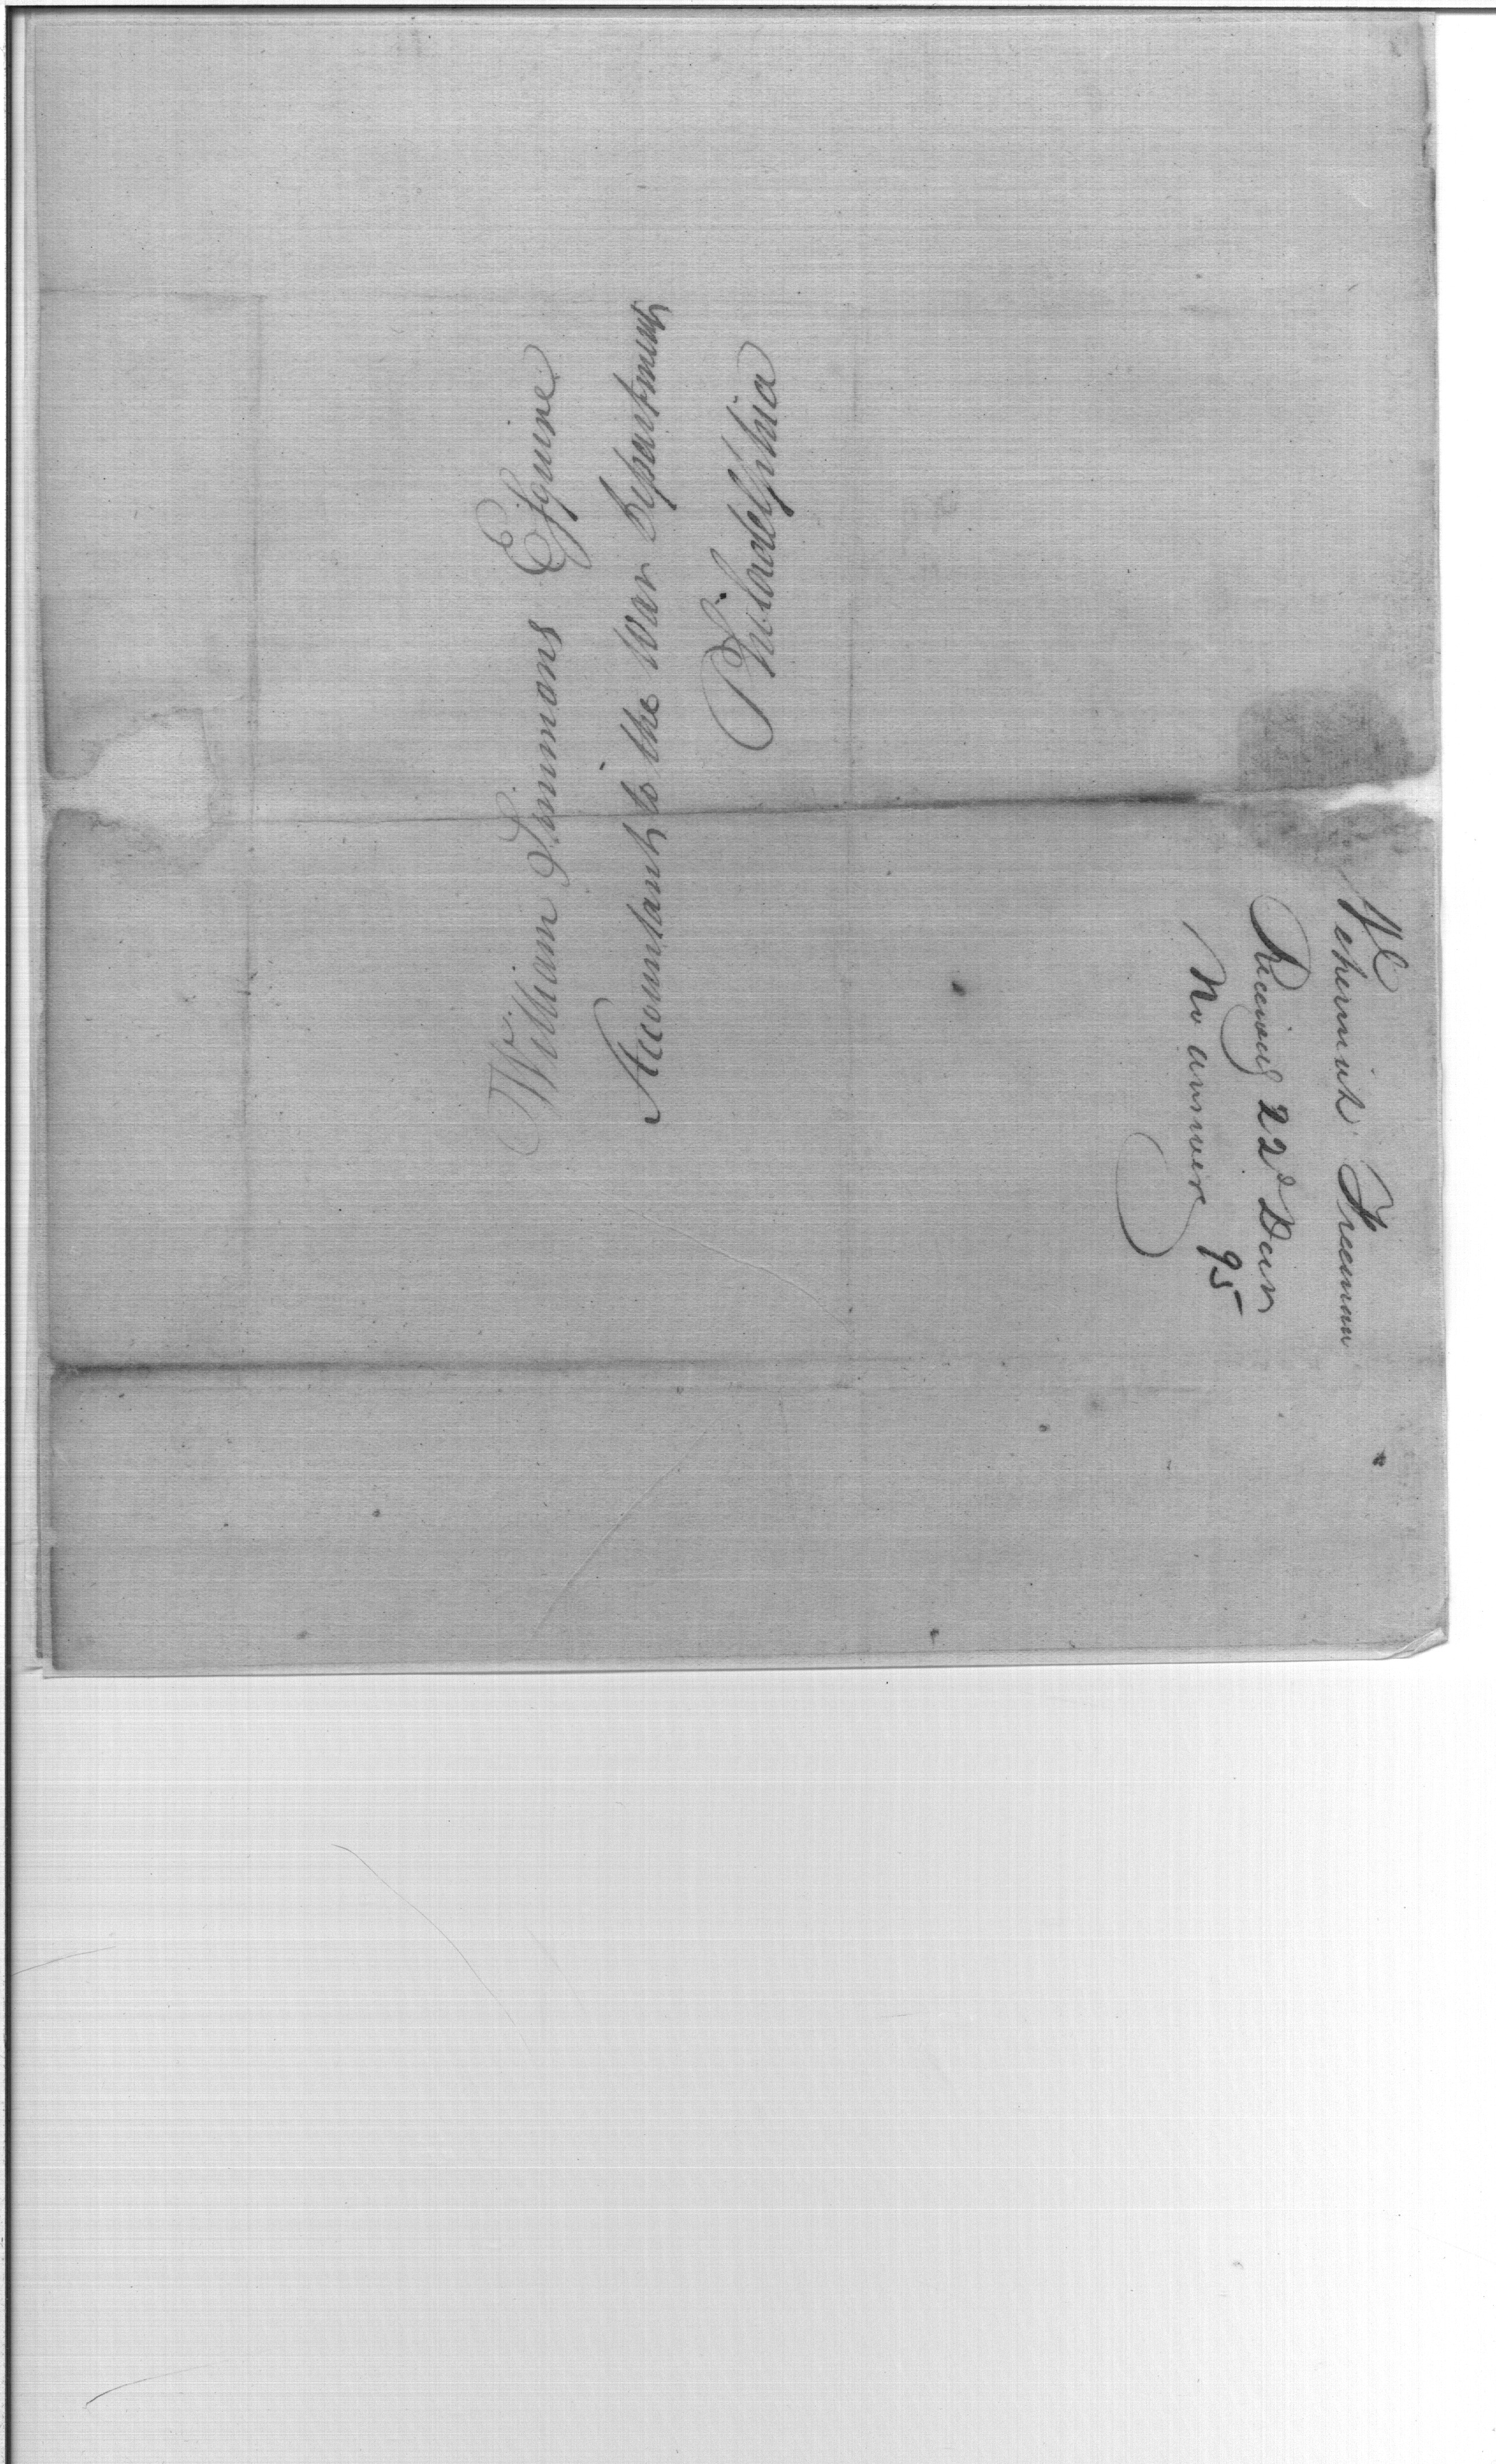 William Simmons Esquire
Accountant to the War Department
Philadelphia
Nehemiah Freeman
Received 22d Decr
95
No answer